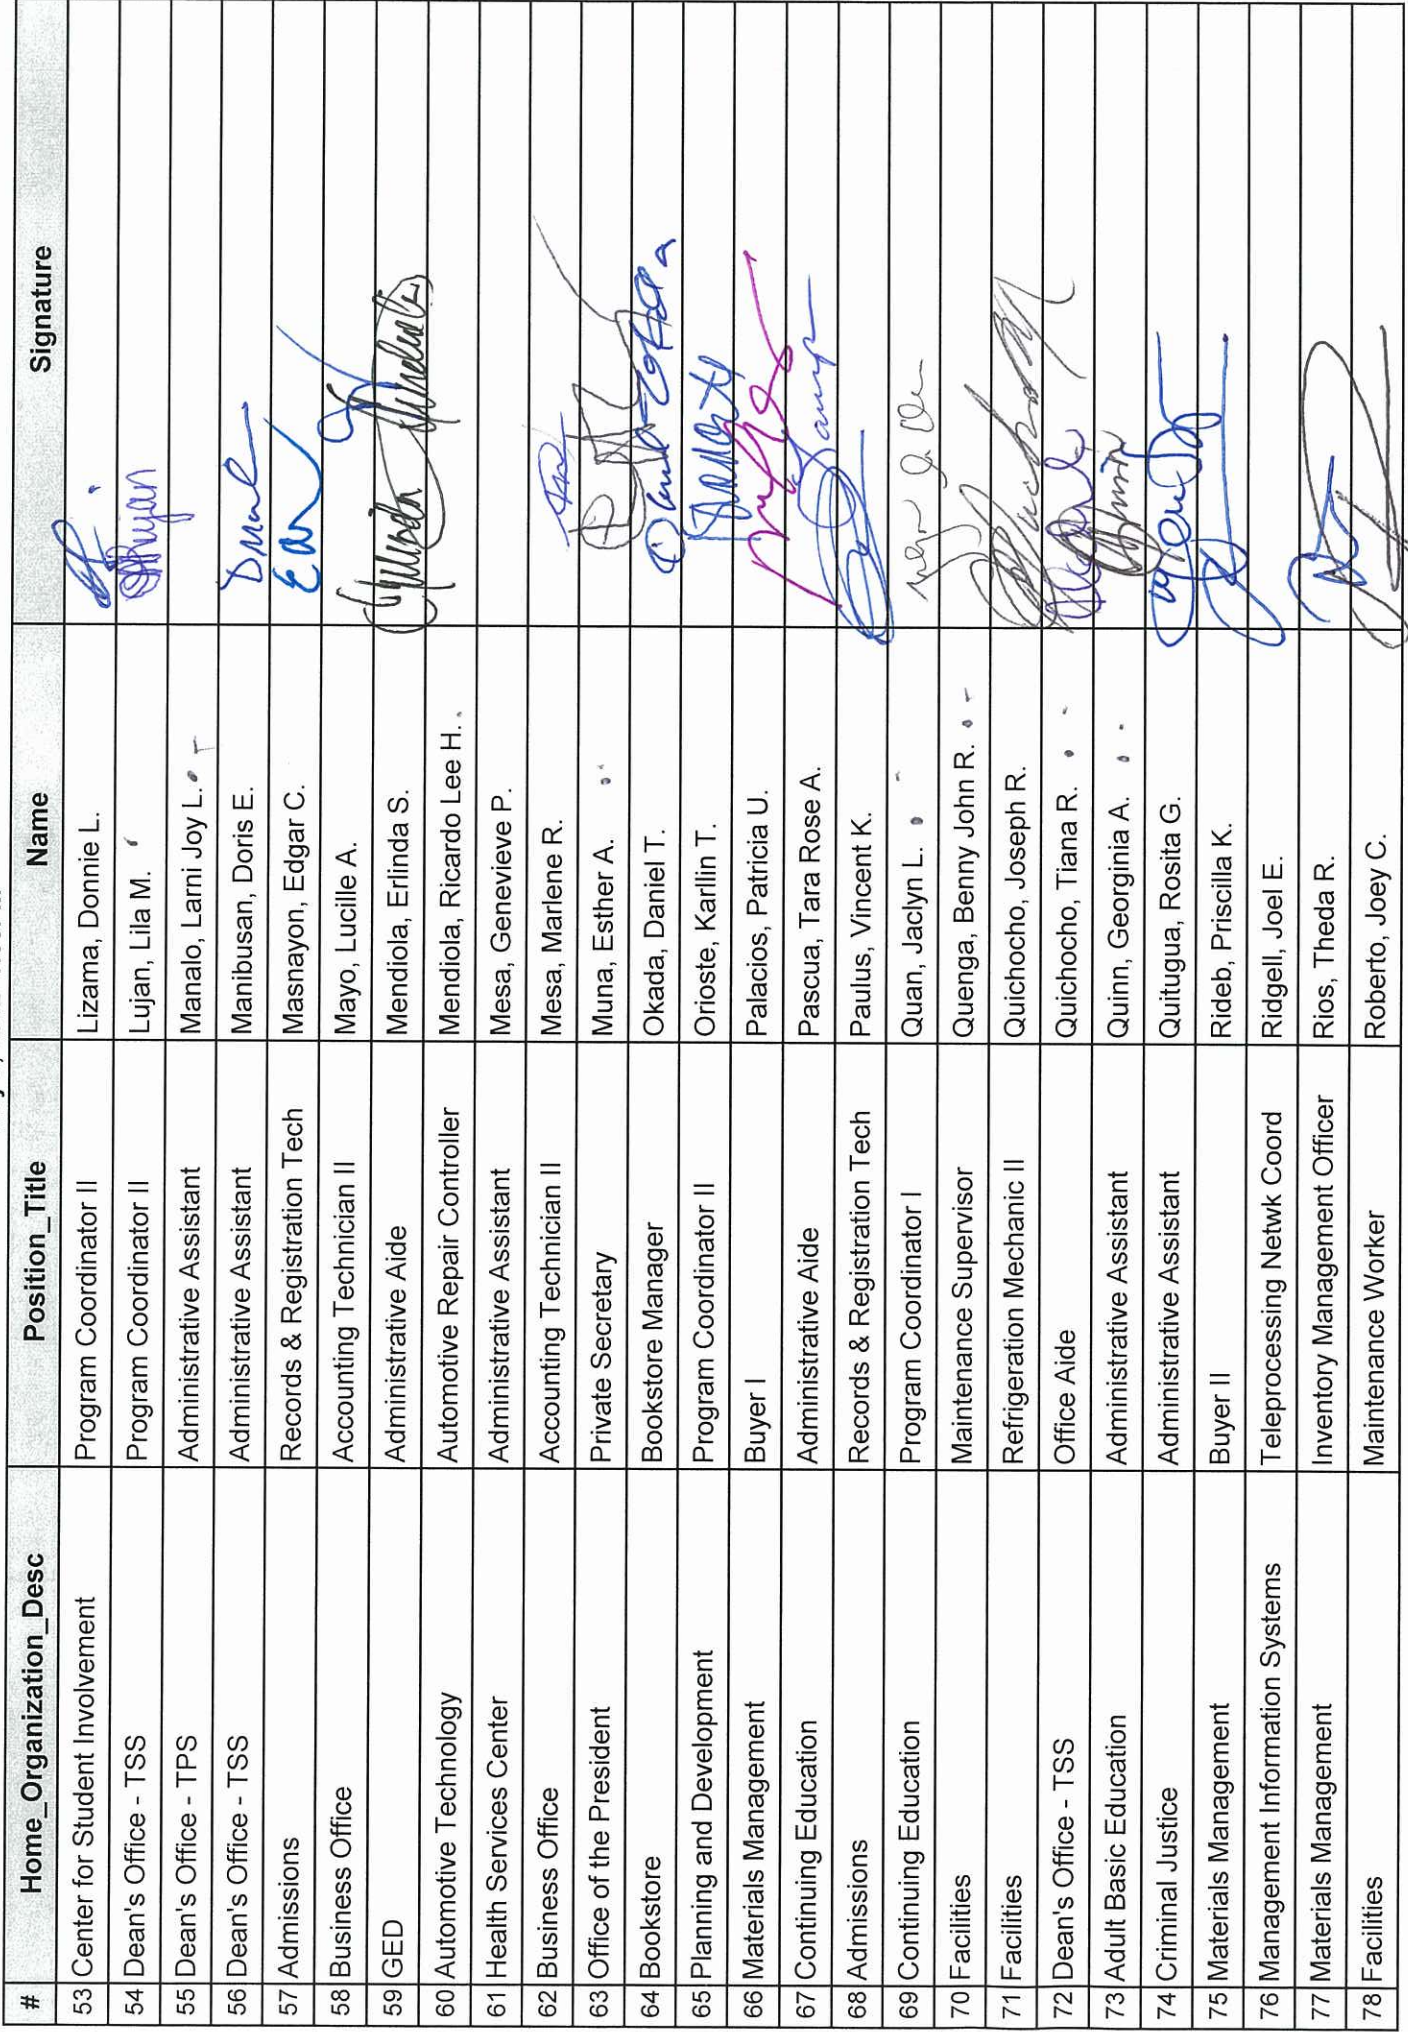 # Home_Organization_Desc Position_Title Name Signature
53 Center for Student Involvement Program Coordinator II Lizama, Donnie L.
54 Dean's Office - TSS Program Coordinator II Lujan, Lila M.
55 Dean's Office - TPS Administrative Assistant Manalo, Larni Joy L.
56 Dean's Office - TSS Administrative Assistant Manibusan, Doris E.
57 Admissions Records & Registration Tech Masnayon, Edgar C.
58 Business Office Accounting Technician II Mayo, Lucille A.
59 GED Administrative Aide Mendiola, Erlinda S.
60 Automotive Technology Automotive Repair Controller Mendiola, Ricardo Lee H.
61 Health Services Center Administrative Assistant Mesa, Genevieve P.
62 Business Office Accounting Technician II Mesa, Marlene R.
63 Office of the President Private Secretary Muna, Esther A.
64 Bookstore Bookstore Manager Okada, Daniel T.
65 Planning and Development Program Coordinator II Orioste, Karllin T.
66 Materials Management Buyer I Palacios, Patricia U.
67 Continuing Education Administrative Aide Pascua, Tara Rose A.
68 Admissions Records & Registration Tech Paulus, Vincent K.
69 Continuing Education Program Coordinator I Quan, Jaclyn L.
70 Facilities Maintenance Supervisor Quenga, Benny John R.
71 Facilities Refrigeration Mechanic II Quichocho, Joseph R.
72 Dean's Office - TSS Office Aide Quichocho, Tiana R.
73 Adult Basic Education Administrative Assistant Quinn, Georginia A.
74 Criminal Justice Administrative Assistant Quitugua, Rosita G.
75 Materials Management Buyer II Rideb, Priscilla K.
76 Management Information Systems Teleprocessing Netwk Coord Ridgell, Joel E.
77 Materials Management Inventory Management Officer Rios, Theda R.
78 Facilities Maintenance Worker Roberto, Joey C.